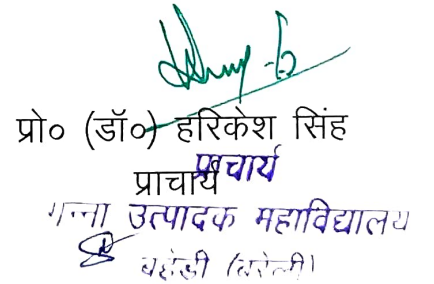 प्रो० (डॉ०) हरिकेश सिंह
प्राचार्य
प्राचार्य
गन्ना उत्पादक महाविद्यालय
बहेड़ी (बरेली)